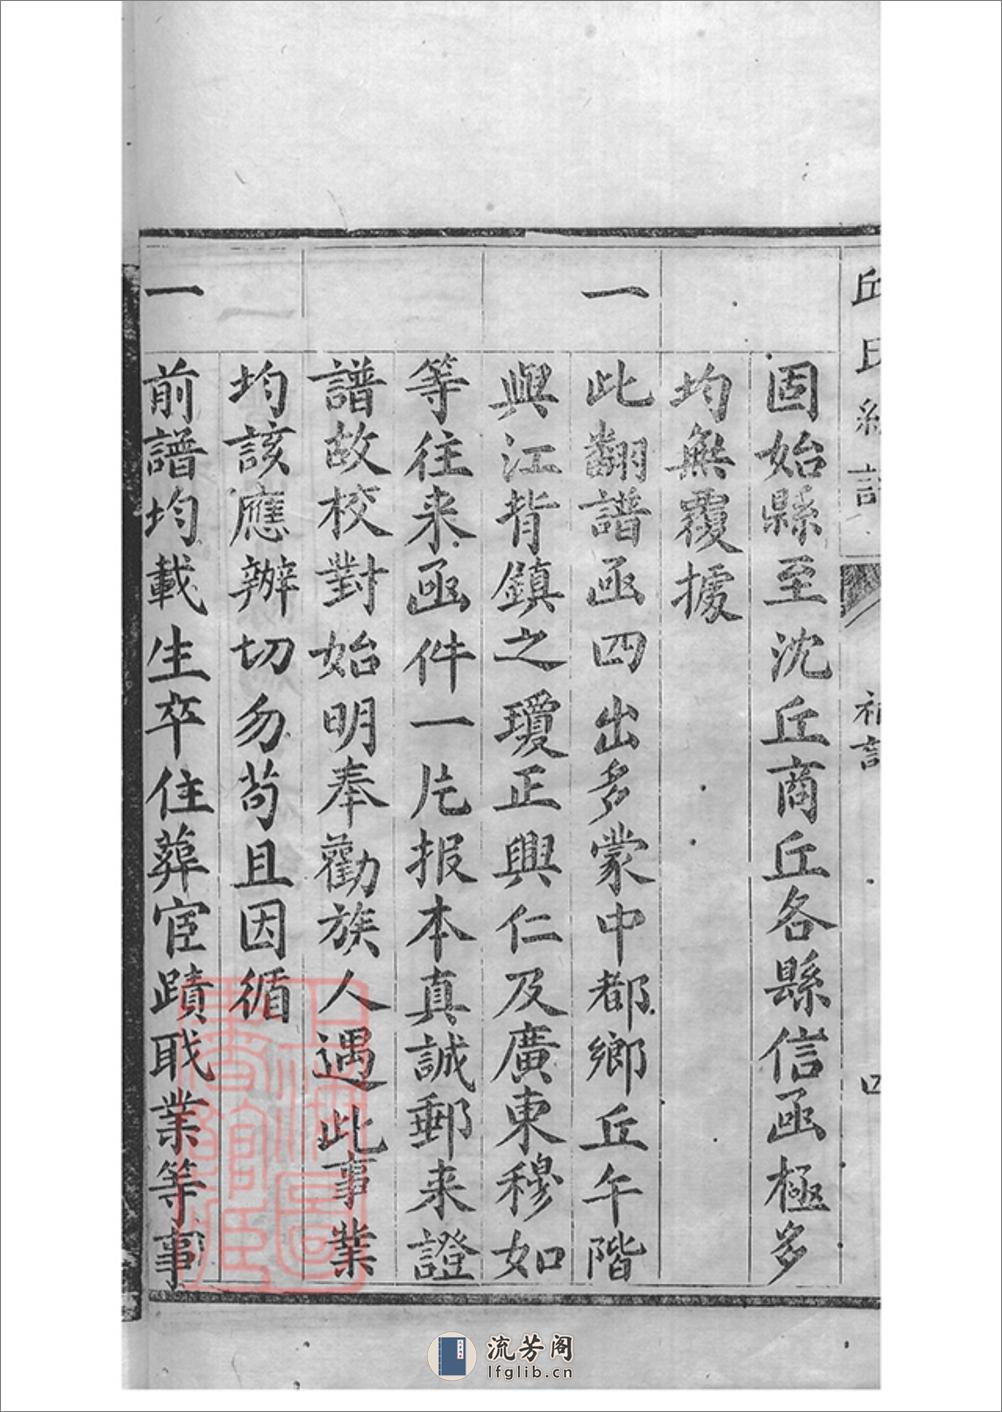 丘氏
補訂
四
固始縣至沈丘商丘各縣信函極多
均無覆據
一 此翻譜函四出多蒙中都鄉丘午階
與江背鎮之瓊正興仁及廣東穆如
等往来函件一片报本真誠郵来證
譜故校對始明奉勸族人遇此事業
均該應辦切勿苟且因循
一 前譜均載生卒住葬宦蹟職業等事
流芳阁
lfglib.cn